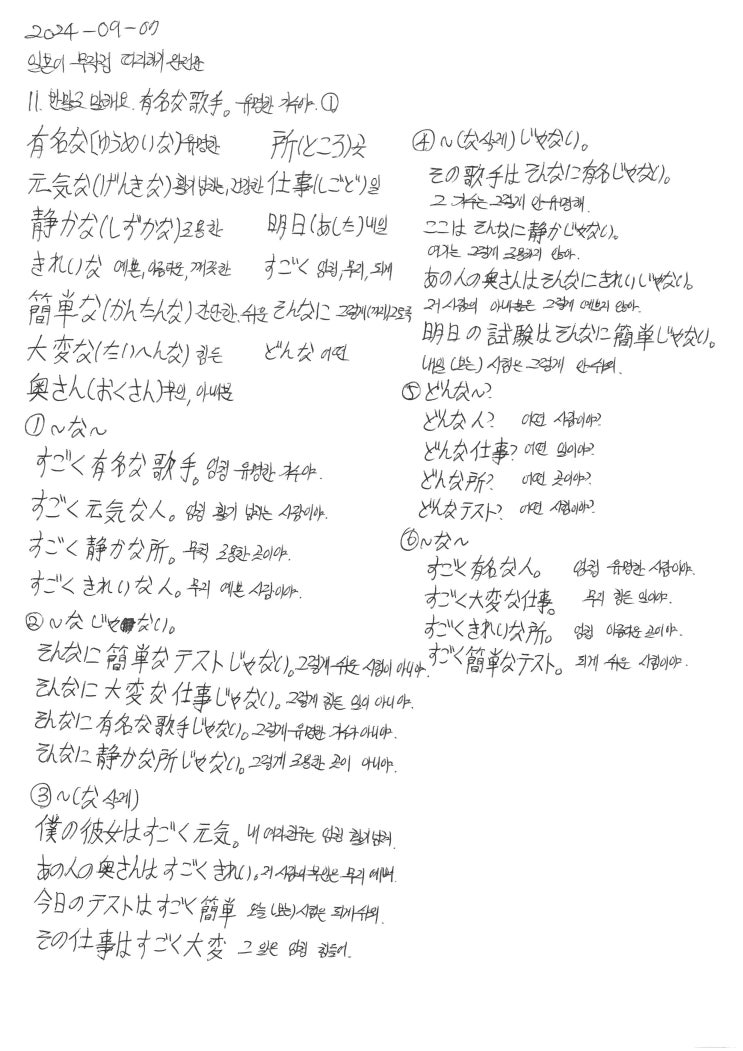 2024-09-07
일본어 무작정 따라하기 완전판
11. 반말로 말해요. 有名な歌手。 유명한 가수야. ①
有名な(ゆうめいな)유명한
元気な(げんきな)활기 넘치는, 건강한
静かな(しずかな)조용한
きれいな 예쁜, 아름다운, 깨끗한
簡単な(かんたんな) 간단한, 쉬운
大変な(たいへんな) 힘든
奥さん(おくさん)부인, 아내분
所(ところ)곳
仕事(しごと)일
明日(あした)내일
すごく 엄청, 무척, 되게
そんなに 그렇게(까지)그토록
どんな 어떤
① ~な~
すごく有名な歌手。엄청 유명한 가수야.
すごく元気な人。엄청 활기 넘치는 사람이야.
すごく静かな所。무척 조용한 곳이야.
すごくきれいな人。무지 예쁜 사람이야.
② ~な じゃない。
そんなに簡単なテストじゃない。그렇게 쉬운 시험이 아니야.
そんなに大変な仕事じゃない。그렇게 힘든 일이 아니야.
そんなに有名な歌手じゃない。그렇게 유명한 가수가 아니야.
そんなに静かな所じゃない。그렇게 조용한 곳이 아니야.
③ ~(な 삭제)
僕の彼女はすごく元気。내 여자친구는 엄청 활기 넘쳐.
あの人の奥さんはすごくきれい。저 사람의 부인은 무지 예뻐.
今日のテストはすごく簡単 오늘 (보는) 시험은 되게 쉬워.
その仕事はすごく大変 그 일은 엄청 힘들어.
④ ~(な삭제)じゃない。
その歌手はそんなに有名じゃない。
그 가수는 그렇게 안 유명해.
ここはそんなに静かじゃない。
여기는 그렇게 조용하지 않아.
あの人の奥さんはそんなにきれいじゃない。
저 사람의 아내분은 그렇게 예쁘지 않아.
明日の試験はそんなに簡単じゃない。
내일 (보는) 시험은 그렇게 안 쉬워.
⑤ どんな~?
どんな人? 어떤 사람이야?
どんな仕事? 어떤 일이야?
どんな所? 어떤 곳이야?
どんなテスト? 어떤 시험이야?
⑥ ~な~
すごく有名な人。 엄청 유명한 사람이야.
すごく大変な仕事。 무지 힘든 일이야.
すごくきれいな所。 엄청 아름다운 곳이야.
すごく簡単なテスト。 되게 쉬운 시험이야.